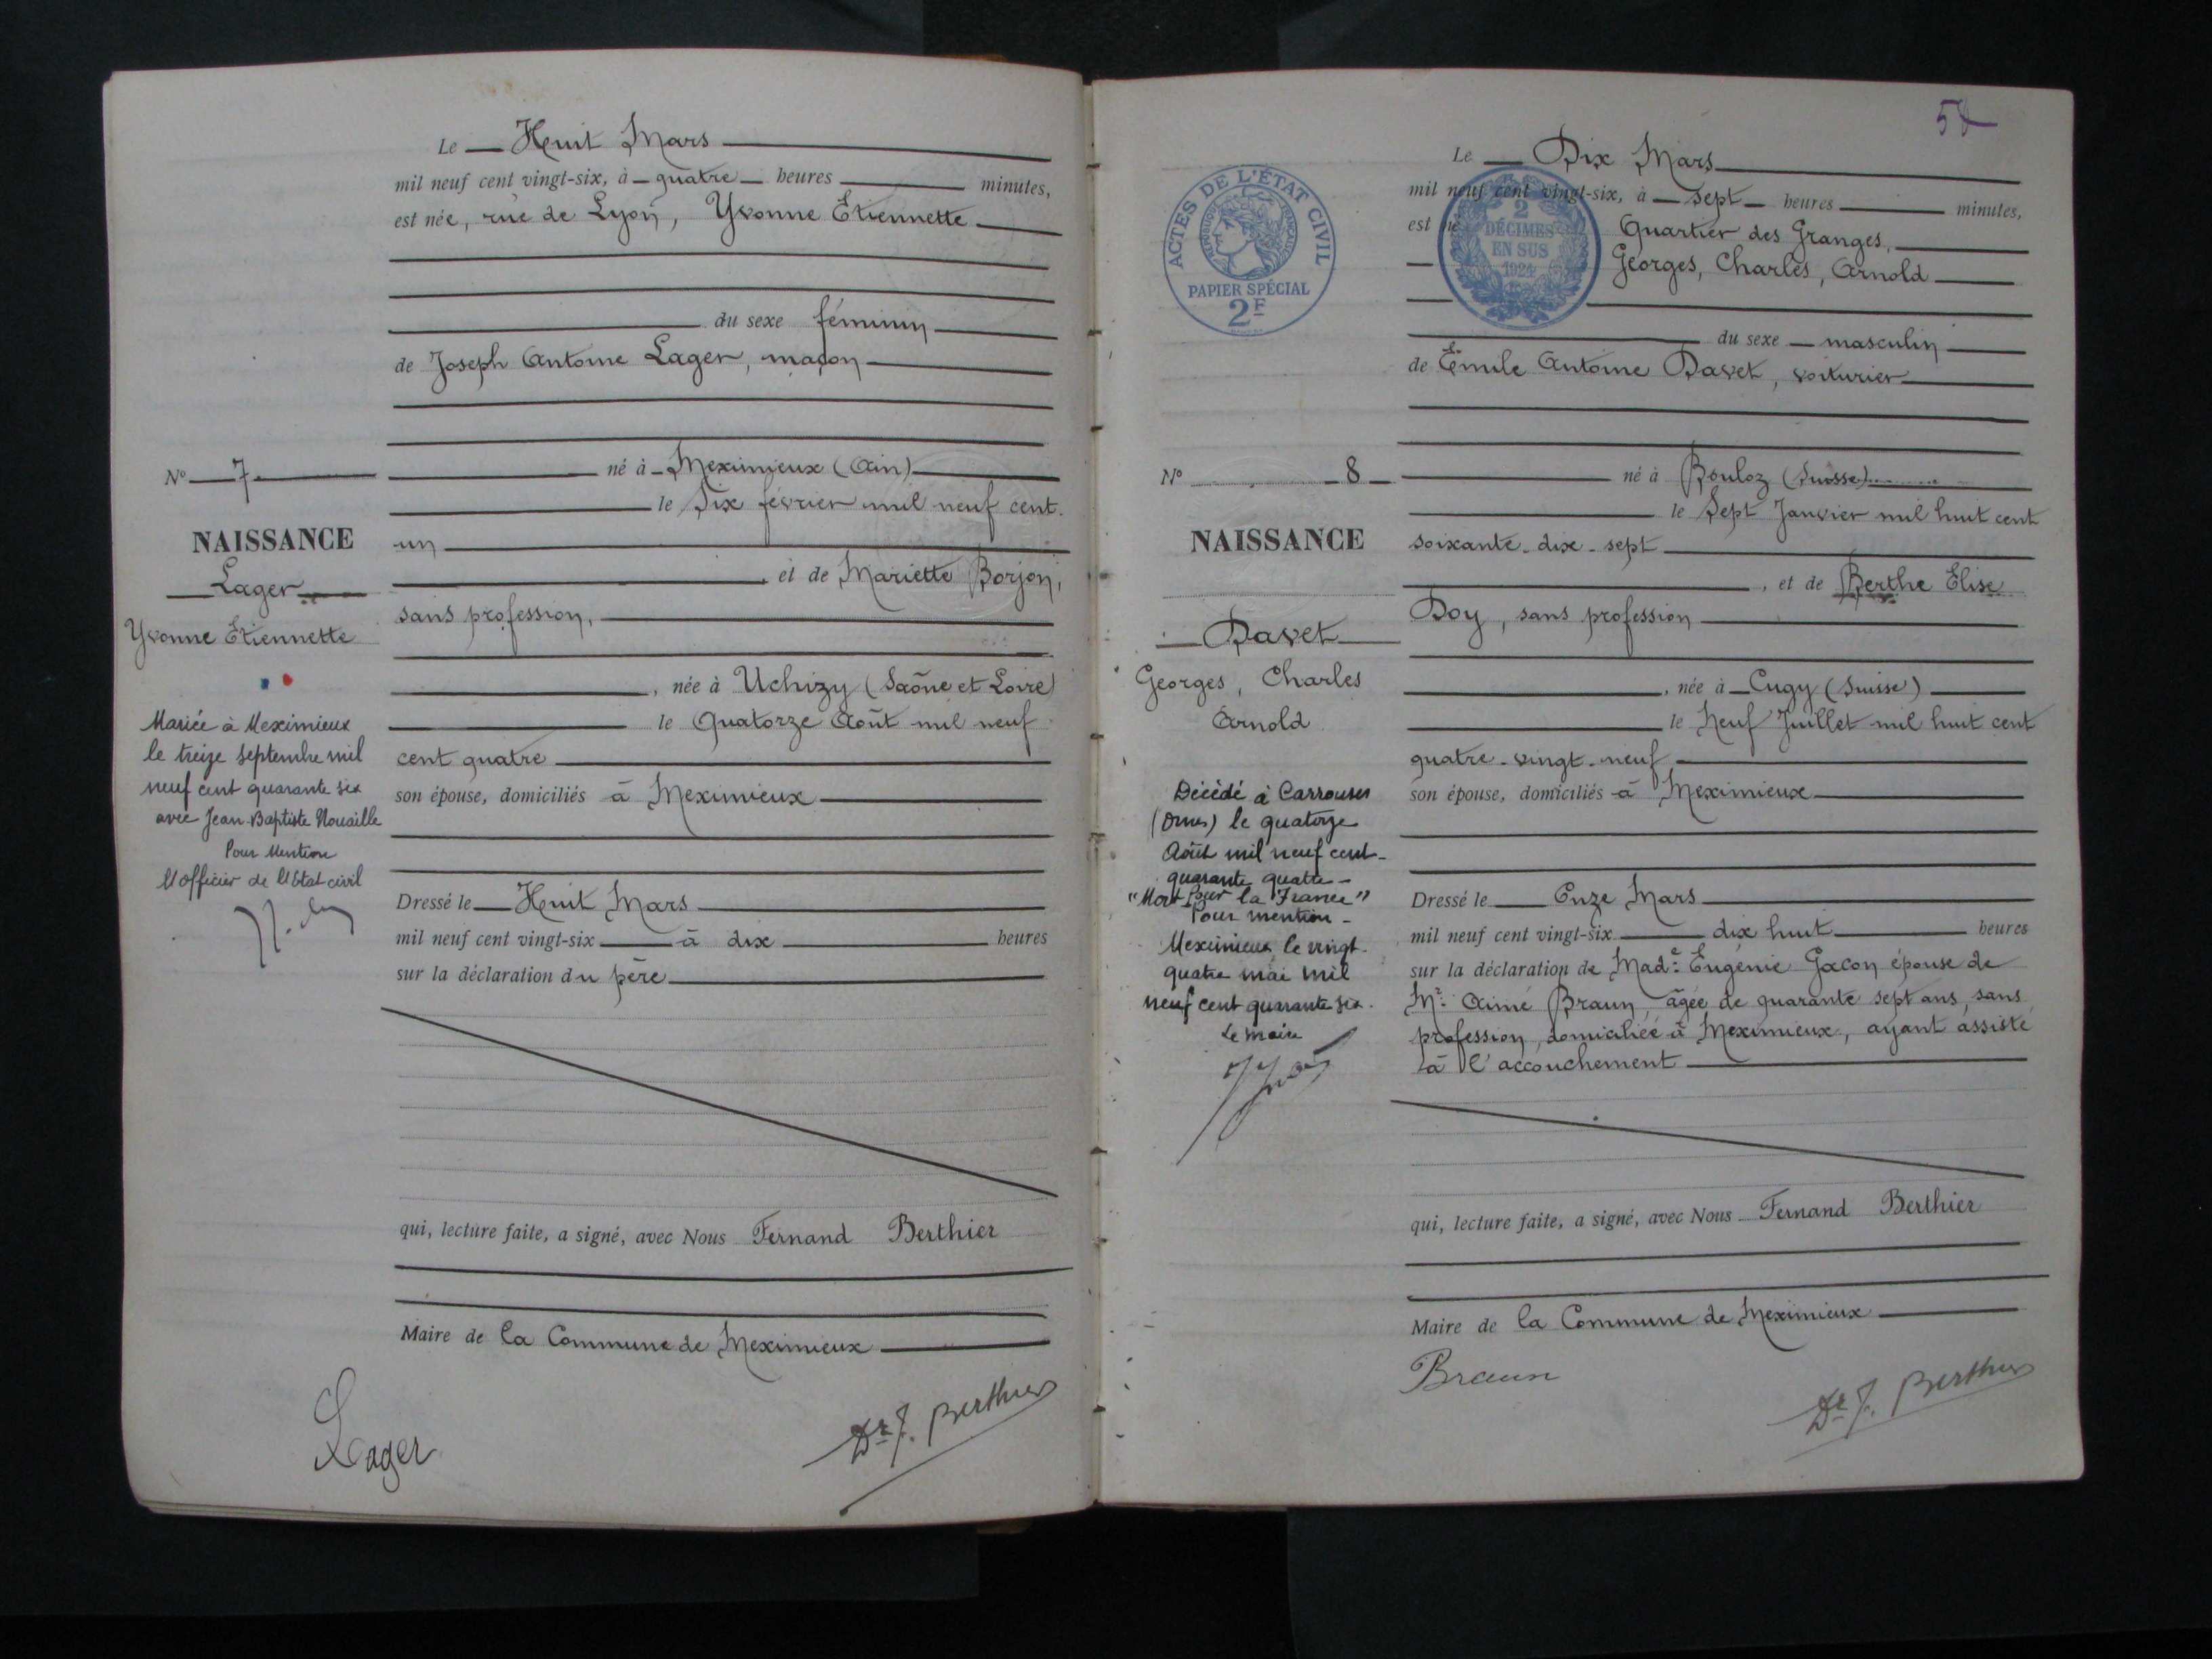 Le Huit Mars
mil neuf cent vingt-six, à quatre heures minutes,
est née, rue de Lyon, Yvonne Etiennette
du sexe féminin
de Joseph Antoine Lager, maçon
né à Meximieux (Ain)
le Dix février mil neuf cent
un
, et de Mariette Borjon,
sans profession,
, née à Uchizy (Saône et Loire)
le Quatorze Août mil neuf
cent quatre
son épouse, domiciliés à Meximieux
Dressé le Huit Mars
mil neuf cent vingt-six à dix heures
sur la déclaration du père
qui, lecture faite, a signé, avec Nous Fernand Berthier
Maire de la Commune de Meximieux
Lager
Dr F. Berthier
No 7
NAISSANCE
Lager
Yvonne Etiennette
Mariée à Meximieux
le treize Septembre mil
neuf cent quarante six
avec Jean-Baptiste Nouaille
Pour Mention
l'Officier de l'Etat civil
58
ACTES DE L'ÉTAT CIVIL
RÉPUBLIQUE FRANÇAISE
PAPIER SPÉCIAL
2F
2
DÉCIMES
EN SUS
1924
Le Dix Mars
mil neuf cent vingt-six, à sept heures minutes,
est né Quartier des Granges,
Georges, Charles, Arnold
du sexe masculin
de Emile Antoine Davet, voiturier
né à Bouloz (Suisse)
le Sept Janvier mil huit cent
soixante-dix-sept
, et de Berthe Elise
Doy, sans profession
, née à Cugy (Suisse)
le Neuf Juillet mil huit cent
quatre-vingt-neuf
son épouse, domiciliés à Meximieux
Dressé le Onze Mars
mil neuf cent vingt-six dix huit heures
sur la déclaration de Made Eugénie Gacon épouse de
Mr Aimé Braun, âgée de quarante sept ans, sans
profession, domiciliée à Meximieux, ayant assisté
à l'accouchement
qui, lecture faite, a signé, avec Nous Fernand Berthier
Maire de la Commune de Meximieux
Braun
Dr F. Berthier
No 8
NAISSANCE
Davet
Georges, Charles
Arnold
Décédé à Carrouges
(Orne) le quatorze
Août mil neuf cent-
quarante quatre-
"Mort Pour la France"
Pour mention-
Meximieux le vingt-
quatre mai mil
neuf cent quarante six.
Le maire